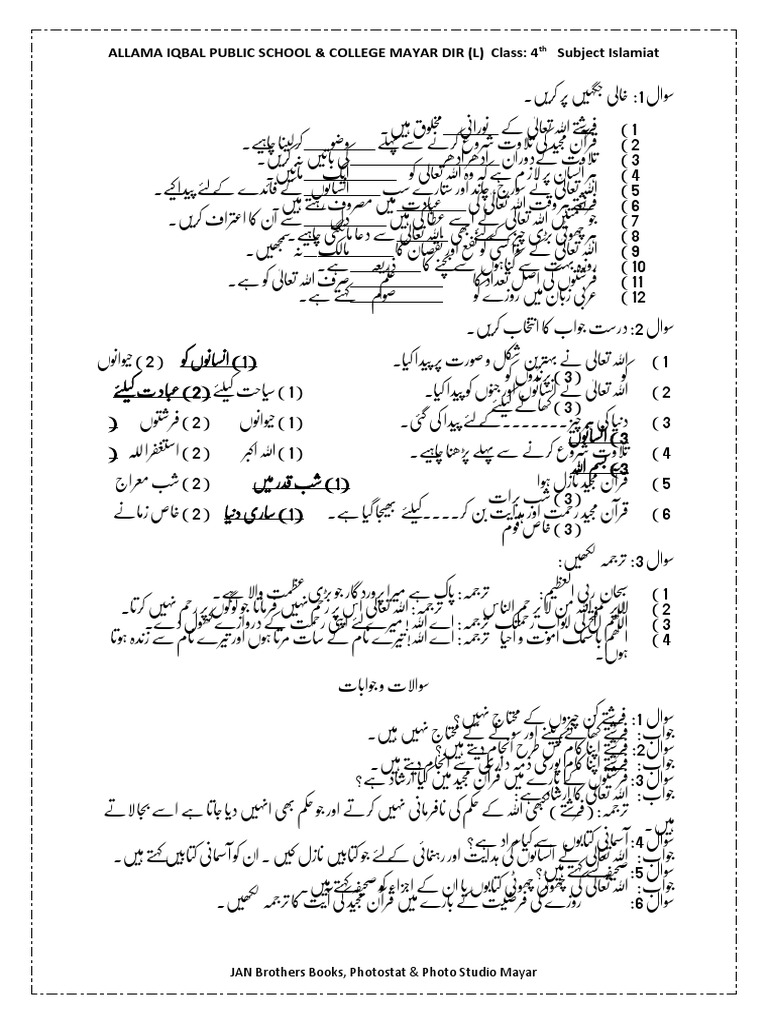 ALLAMA IQBAL PUBLIC SCHOOL & COLLEGE MAYAR DIR (L) Class: 4th Subject Islamiat
سوال 1: خالی جگہیں پر کریں۔
1) فرشتے اللہ تعالیٰ کے ___نورانی___ مخلوق ہیں۔
2) قرآن مجید کی تلاوت شروع کرنے سے پہلے ___وضو___ کر لینا چاہیے۔
3) تلاوت کے دوران ___ادھر ادھر___ کی باتیں نہ کریں۔
4) ہر انسان پر لازم ہے کہ وہ اللہ تعالیٰ کو ___ایک___ مانیں۔
5) اللہ تعالیٰ نے سورج، چاند اور ستارے سب ___انسانوں___ کے فائدے کے لئے پیدا کیے۔
6) فرشتے ہر وقت اللہ تعالیٰ کی ___عبادت___ میں مصروف رہتے ہیں۔
7) جو نعمتیں اللہ تعالیٰ نے اسے عطا کی ہیں ___دل___ سے ان کا اعتراف کریں۔
8) ہر چھوٹی بڑی چیز کے لئے بھی ___اللہ تعالیٰ___ سے دعا مانگنی چاہیے۔
9) اللہ تعالیٰ کے سوا کسی کو نفع اور نقصان کا ___مالک___ نہ سمجھیں۔
10) روزہ بہت سے گناہوں سے بچنے کا ___ذریعہ___ ہے۔
11) فرشتوں کی اصل تعداد کا ___علم___ صرف اللہ تعالیٰ کو ہے۔
12) عربی زبان میں روزے کو ___صوم___ کہتے ہے۔
سوال 2: درست جواب کا انتخاب کریں۔
1) اللہ تعالیٰ نے بہترین شکل و صورت پر پیدا کیا۔ (1) انسانوں کو (2) حیوانوں
کو (3) پرندوں کو
2) اللہ تعالیٰ نے انسانوں اور جنوں کو پیدا کیا۔ (1) سیاحت کیلئے (2) عبادت کیلئے
(3) کھانے کیلئے
3) دنیا کی ہر چیز۔۔۔۔۔۔۔کے لئے پیدا کی گئی۔ (1) حیوانوں (2) فرشتوں (
3) انسانوں
4) تلاوت شروع کرنے سے پہلے پڑھنا چاہیے۔ (1) اللہ اکبر (2) استغفر اللہ (
3) بسم اللہ
5) قرآن مجید نازل ہوا (1) شب قدر میں (2) شب معراج
(3) شب برات
6) قرآن مجید رحمت اور ہدایت بن کر۔۔۔۔کیلئے بھیجا گیا ہے۔ (1) ساری دنیا (2) خاص زمانے
(3) خاص قوم
سوال 3: ترجمہ لکھیں:
1) سبحان ربی العظیم: ترجمہ: پاک ہے میرا پروردگار جو بڑی عظمت والا ہے۔
2) لا یرحم اللہ من لا یرحم الناس ترجمہ: اللہ تعالیٰ اس پر رحم نہیں فرماتا جو لوگوں پر رحم نہیں کرتا۔
3) اللھم افتح لی ابواب رحمتک ترجمہ: اے اللہ! میرے لئے اپنی رحمت کے دروازے کھول دے۔
4) اللھم باسمک اموت و احیا ترجمہ: اے اللہ! تیرے نام کے سات مرتا ہوں اور تیرے نام سے زندہ ہوتا
ہوں۔
سوالات و جوابات
سوال 1: فرشتے کن چیزوں کے محتاج نہیں؟
جواب: فرشتے کھانے پینے اور سونے کے محتاج نہیں ہیں۔
سوال 2: فرشتے اپنا کام کس طرح انجام دیتے ہیں؟
جواب: فرشتے اپنا کام پوری ذمہ داری سے انجام دیتے ہیں۔
سوال 3: فرشتوں کے بارے میں قرآن مجید میں کیا ارشاد ہے؟
جواب: اللہ تعالیٰ کا ارشاد ہے:
ترجمہ: (فرشتے) کبھی اللہ کے حکم کی نافرمانی نہیں کرتے اور جو حکم بھی انہیں دیا جاتا ہے اسے بجا لاتے
ہیں۔
سوال 4: آسمانی کتابوں سے کیا مراد ہے؟
جواب: اللہ تعالیٰ نے انسانوں کی ہدایت اور رہنمائی کے لئے جو کتابیں نازل کیں۔ ان کو آسمانی کتابیں کہتے ہیں۔
سوال 5: صحیفے کسے کہتے ہیں؟
جواب: اللہ تعالیٰ کی چھوٹی چھوٹی کتابوں یا ان کے اجزاء کو صحیفہ کہتے ہیں۔
سوال 6: روزے کی فرضیت کے بارے میں قرآن مجید کی آیت کا ترجمہ لکھیں۔
JAN Brothers Books, Photostat & Photo Studio Mayar